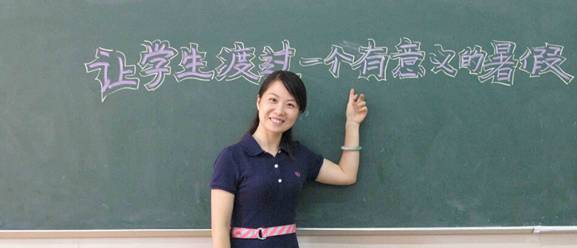 让学生度过一个有意义的暑假